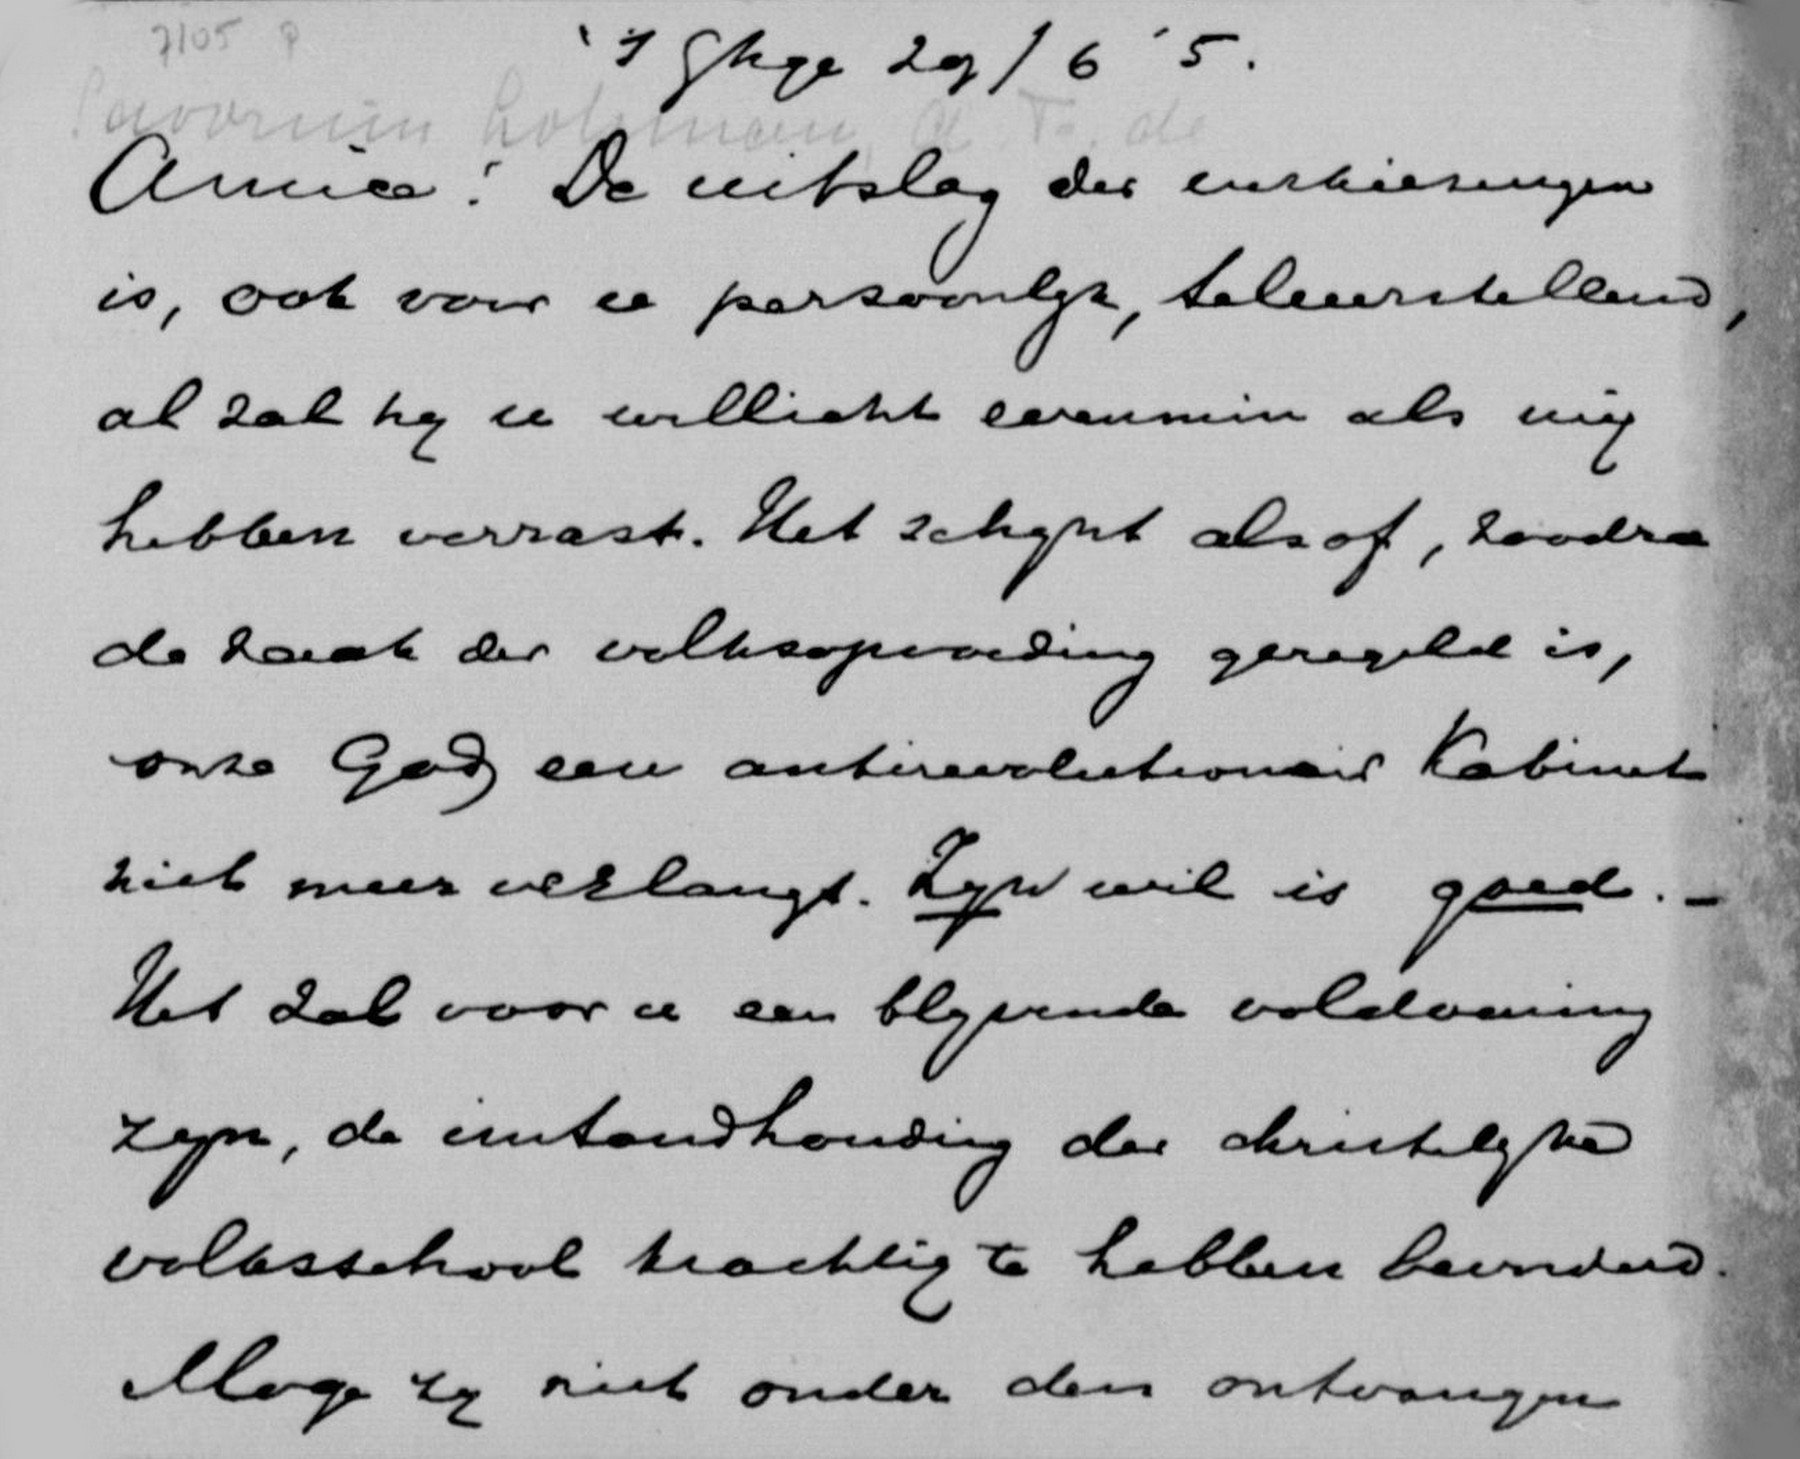 7105 P
's Ghge 29/6 '5.
Savornin Lohman, A. F. de
Amice! De uitslag der verkiezingen
is, ook voor u persoonlyk, teleurstellend,
al zal hy u wellicht evenmin als my
hebben verrast. Het schynt alsof, zoodra
de zaak der volksopvoeding geregeld is,
onze God een antirevolutionair Kabinet
niet meer verlangt. Zyn wil is goed. –
Het zal voor u een blyvende voldoening
zyn, de instandhouding der christelyke
volksschool krachtig te hebben bevorderd.
Moge zy niet onder den ontvangen